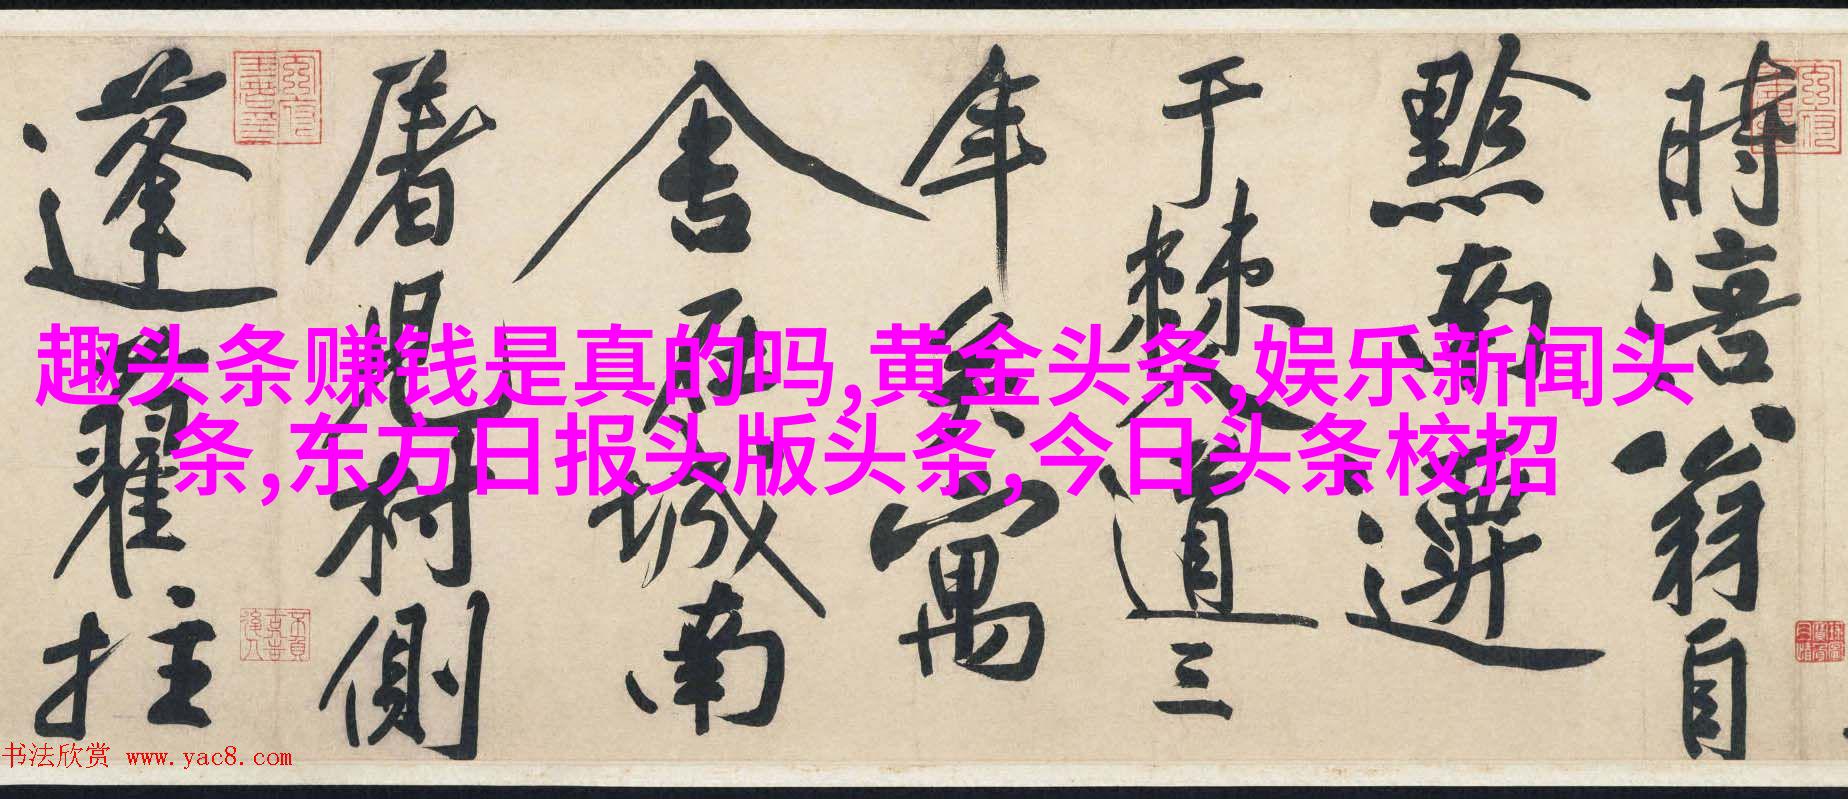 時涪翁自
黔南遷
于僰道三
年矣寓
舍在城南
屠児村側
蓬藋拄
趣头条赚钱是真的吗,黄金头条,娱乐新闻头
条,东方日报头版头条, 今日头条校招
书法欣赏 www.yac8.com